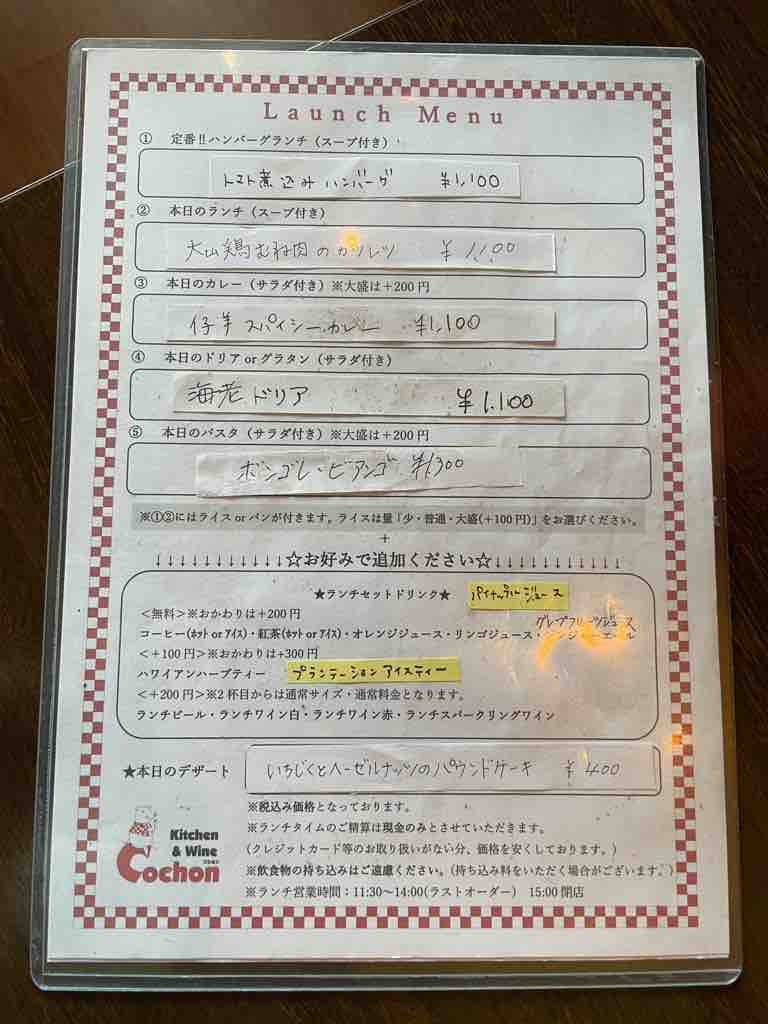 Launch Menu
① 定番!!ハンバーグランチ（スープ付き）
トマト煮込みハンバーグ ¥1,100
② 本日のランチ（スープ付き）
大山鶏むね肉のカツレツ ¥1,100
③ 本日のカレー（サラダ付き）※大盛は＋200円
仔羊スパイシーカレー ¥1,100
④ 本日のドリアorグラタン（サラダ付き）
海老ドリア ¥1,100
⑤ 本日のパスタ（サラダ付き）※大盛は＋200円
ボンゴレ・ビアンゴ ¥1,300
※①②にはライスorパンが付きます。ライスは量「少・普通・大盛(＋100円)」をお選びください。
＋
↓↓↓↓↓↓↓↓↓↓↓☆お好みで追加ください☆↓↓↓↓↓↓↓↓↓↓↓
★ランチセットドリンク★ パイナップルジュース
＜無料＞※おかわりは＋200円 グレープフルーツジュース
コーヒー(ホット or アイス)・紅茶(ホット or アイス)・オレンジジュース・リンゴジュース・ジンジャーエール
＜＋100円＞※おかわりは+300円
ハワイアンハーブティー プランテーションアイスティー
＜＋200円＞※2杯目からは通常サイズ・通常料金となります。
ランチビール・ランチワイン白・ランチワイン赤・ランチスパークリングワイン
★本日のデザート いちじくとヘーゼルナッツのパウンドケーキ ¥400
※税込み価格となっております。
※ランチタイムのご精算は現金のみとさせていただきます。
(クレジットカード等のお取り扱いがない分、価格を安くしております。)
※飲食物の持ち込みはご遠慮ください。(持ち込み料をいただく場合がございます。)
※ランチ営業時間：11:30～14:00(ラストオーダー) 15:00閉店
Kitchen
& Wine
Cochon